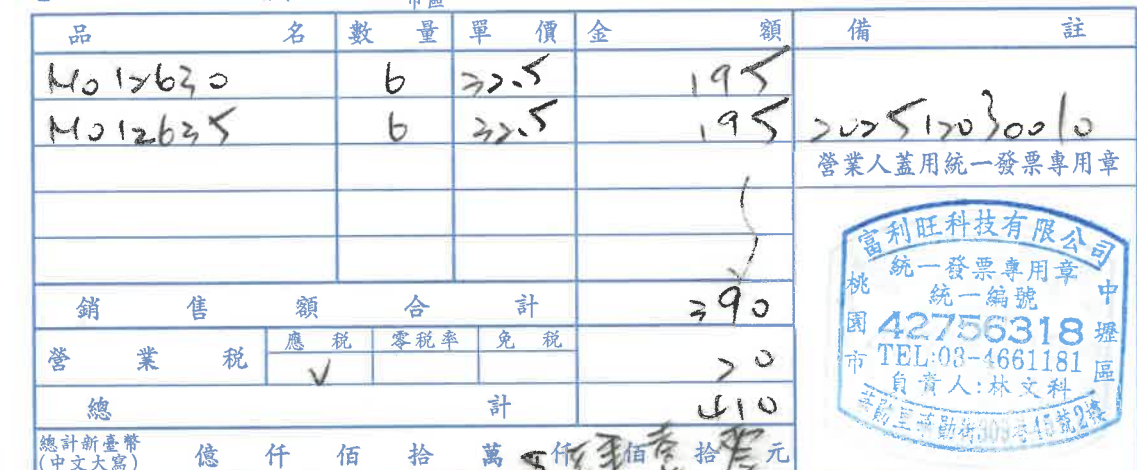 品名 數量 單價 金額 備註
M012630 6 32.5 195
M012635 6 32.5 195 202512030010
營業人蓋用統一發票專用章
銷售額合計 390
營業稅 應稅 零稅率 免稅 20
V
總計 410
總計新臺幣
(中文大寫) 億 仟 佰 拾 萬 仟 佰 拾 元
富利旺科技有限公司
統一發票專用章
統一編號
42756318
TEL:03-4661181
負責人:林文科
桃園市
中壢區